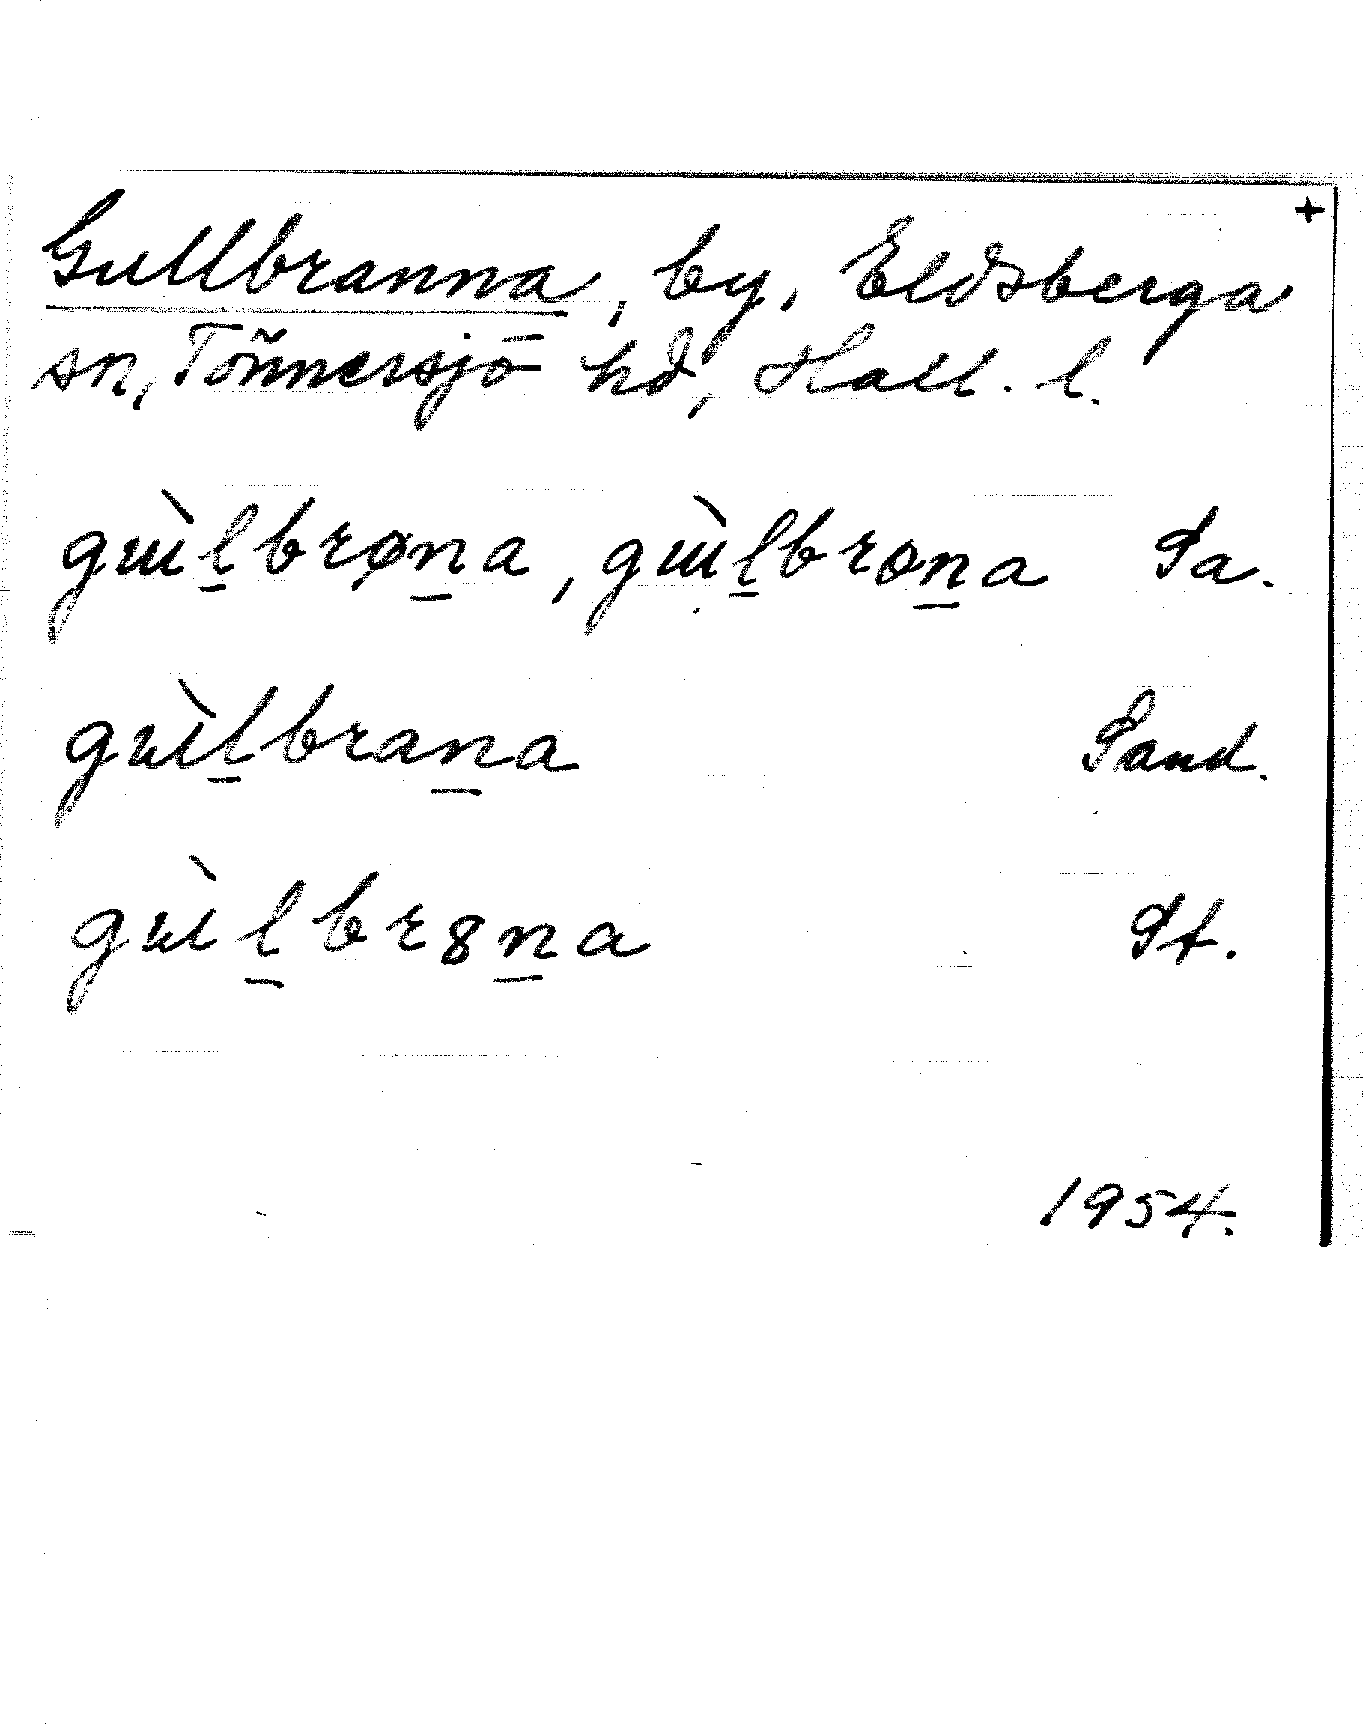 +
Gullbranna, by, Eldsberga
sn, Tönnersjö hd, Hall. l.
gɯ̀l̲brøn̲a, gɯ̀l̲bron̲a Sa.
gɯ̀l̲bran̲a Sand.
gɯ̀l̲br8n̲a St.
1954.